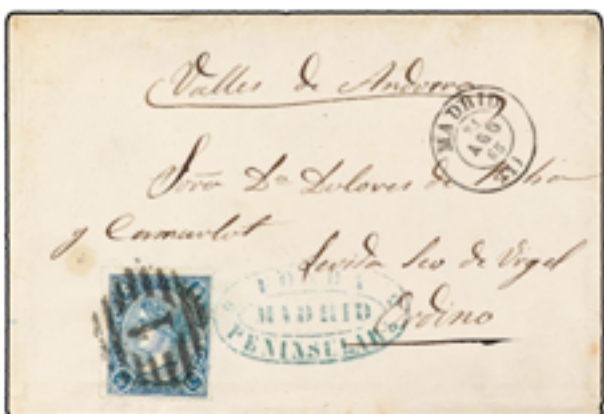 Valles de Andorra
MADRID
AGO
65
(1)
Sora Da Dolores de
y Camarlot
Lerida Seo de Urgel
Ordino
FONDA
MADRID
PENINSULAR
1